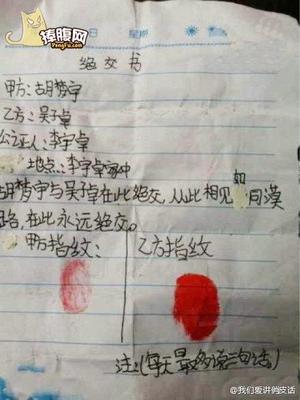 捧腹网
PengFu.com
星期
绝交书
甲方:胡梦宇
乙方:吴子卓
公证人:李宇卓
地点:李宇卓家中
胡梦宇与吴子卓在此绝交,从此相见如同漠
路,在此永远绝交。
甲方指纹:
乙方指纹
注:(每天最多说三句话。)
@我们爱讲俏皮话